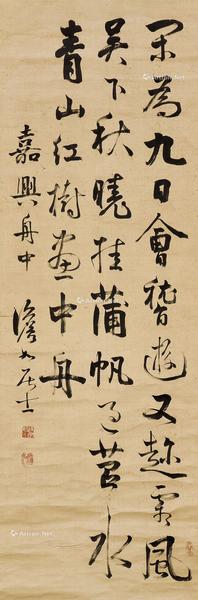 為九日會稽遊又趁霜風
吳下秋曉挂蒲帆過苕水
青山紅樹畫中舟
嘉興舟中
澹如居士